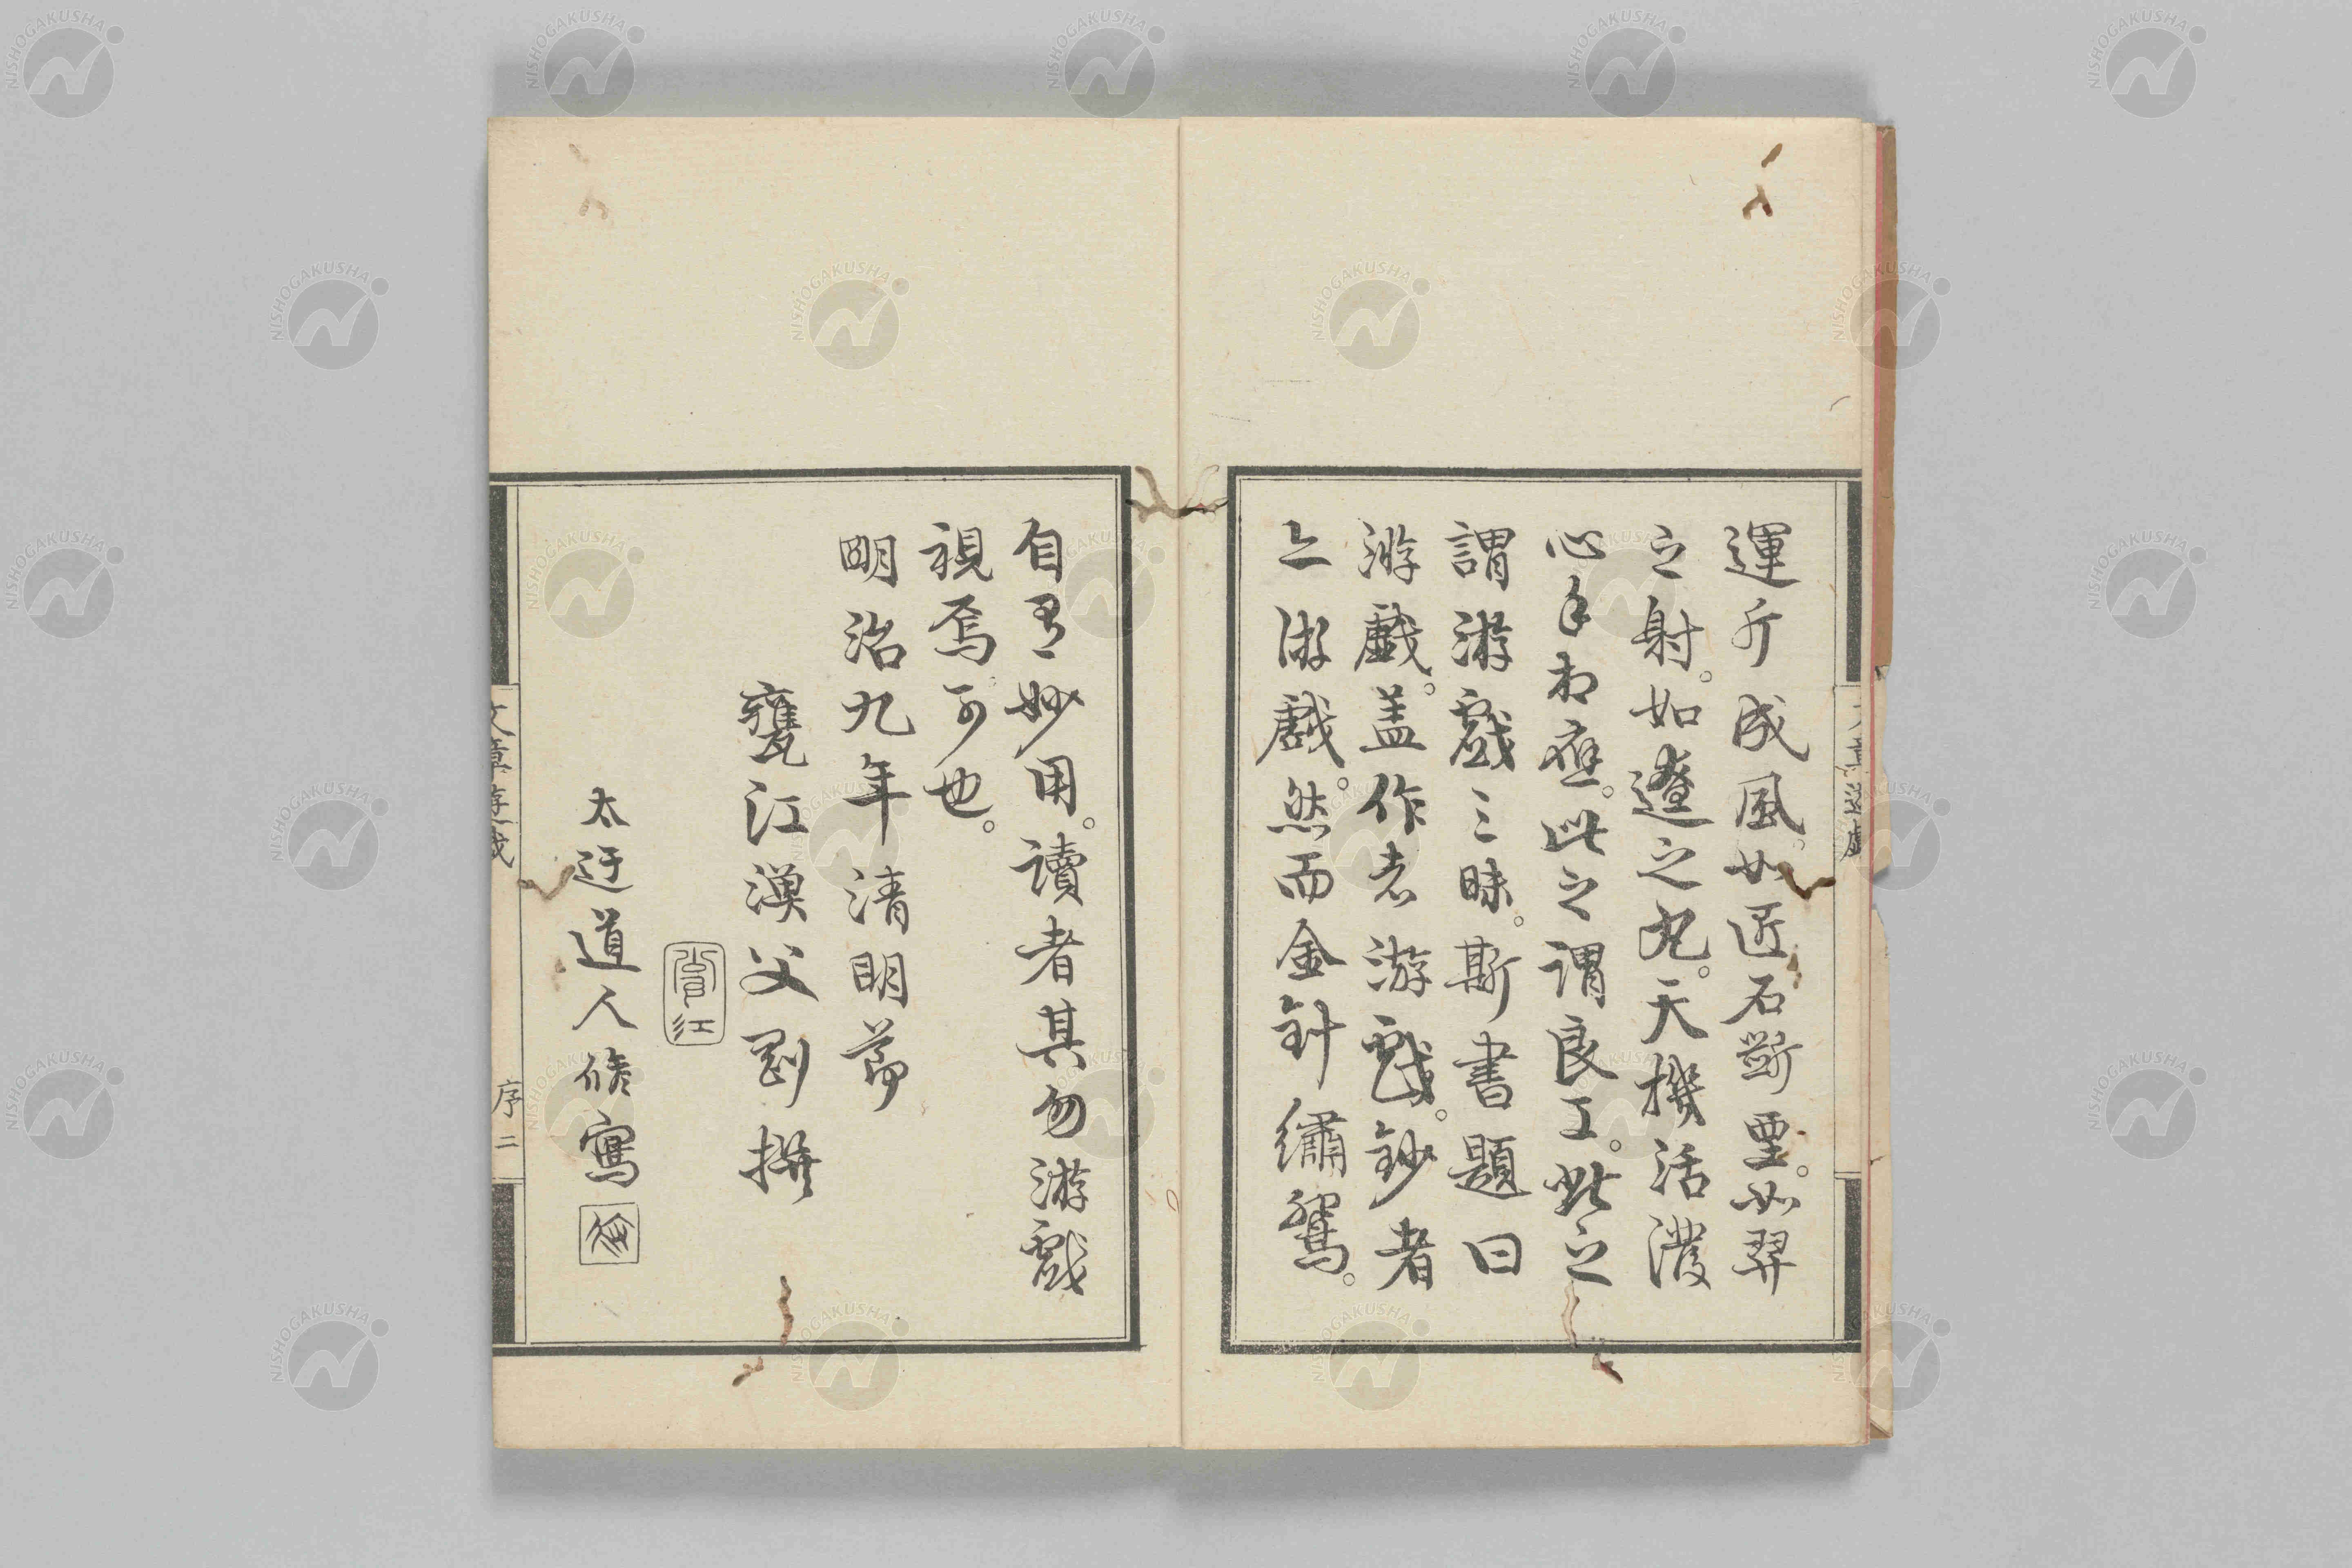 運斤成風。如匠石斲堊。如羿
之射。如遼之丸。天機活潑
心手相應。此之謂良工。此之
謂游戲三昧。斯書題曰
游戲。蓋作者游戲。鈔者
亦游戲。然而金針繡鴛。
自有妙用。讀者其勿游戲
視焉。可也。
明治九年清明節
甕江漁父剛撰
太迂道人脩寫
文章遊戲
序二
NISHOGAKUSHA